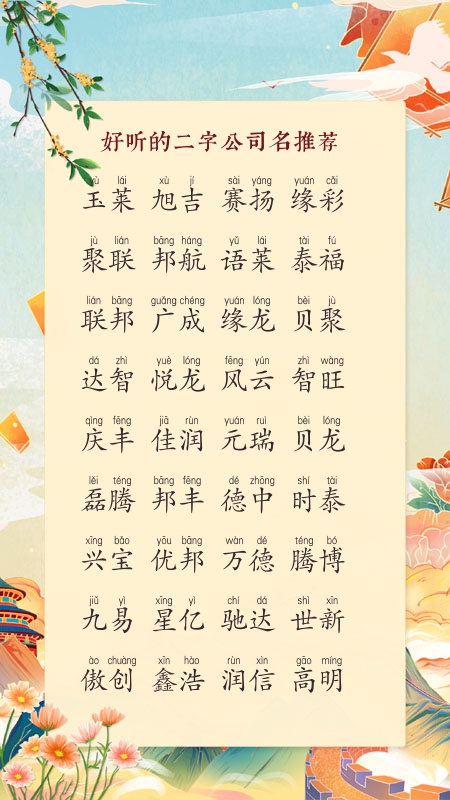 好听的二字公司名推荐
yù lái xù jí sài yáng yuán cǎi
玉莱 旭吉 赛扬 缘彩
jù lián bāng háng yǔ lái tài fú
聚联 邦航 语莱 泰福
lián bāng guǎng chéng yuán lóng bèi jù
联邦 广成 缘龙 贝聚
dá zhì yuè lóng fēng yún zhì wàng
达智 悦龙 风云 智旺
qìng fēng jiā rùn yuán ruì bèi lóng
庆丰 佳润 元瑞 贝龙
lěi téng bāng fēng dé zhōng shí tài
磊腾 邦丰 德中 时泰
xīng bǎo yōu bāng wàn dé téng bó
兴宝 优邦 万德 腾博
jiǔ yì xīng yì chí dá shì xīn
九易 星亿 驰达 世新
ào chuàng xīn hào rùn xìn gāo míng
傲创 鑫浩 润信 高明